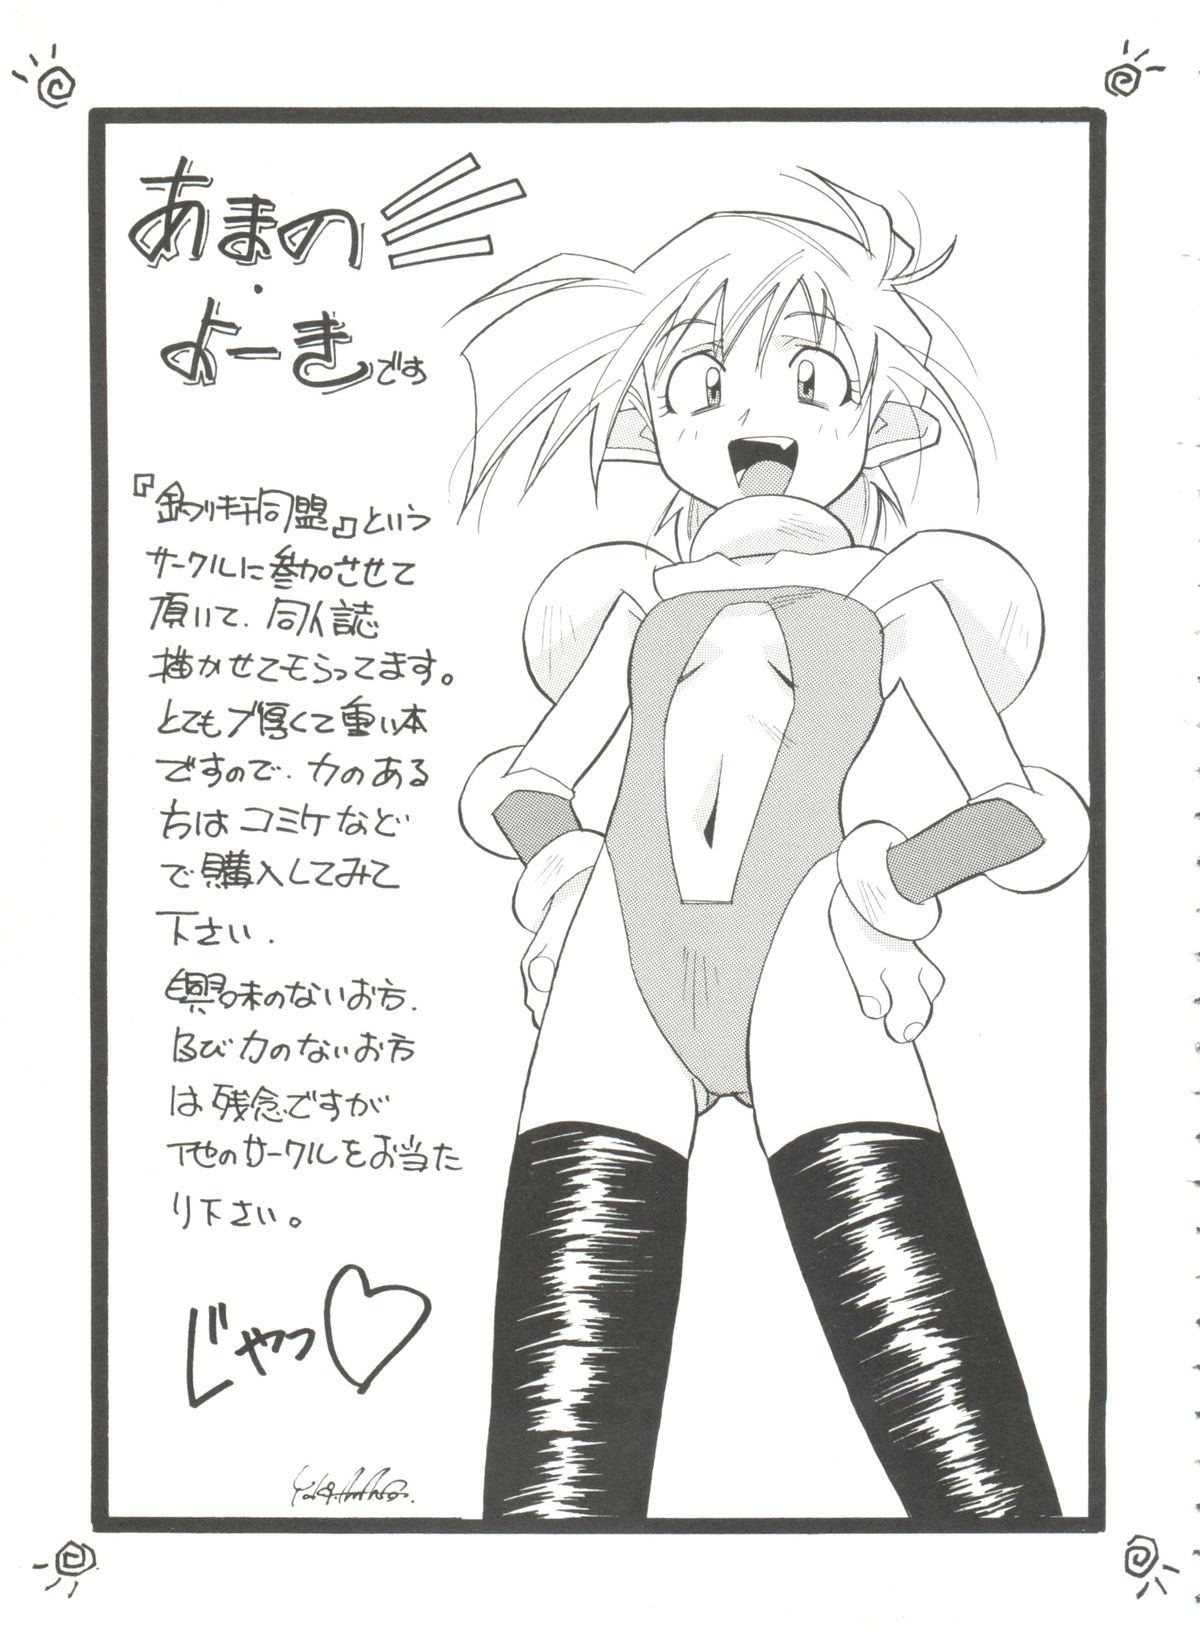 あまの
・
よーきです
『釣りキチ同盟』という
サークルに参加させて
頂いて、同人誌
描かせてもらってます。
とてもブ厚くて重い本
ですので、力のある
方はコミケなど
で購入してみて
下さい.
興味のないお方.
及び力のないお方
は残念ですが
他のサークルをお当た
り下さい。
じゃっ♡